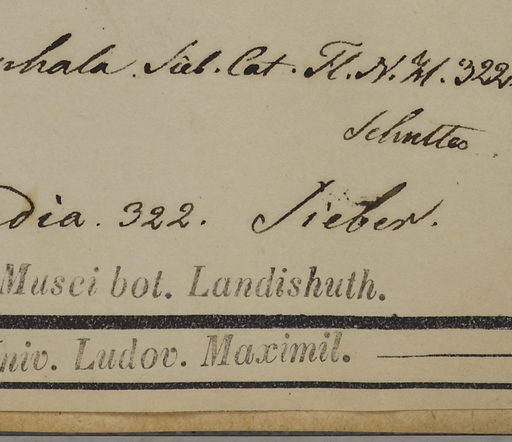 phala. Sieb. Cat. Fl. N. H. 322.
Schultes
dia. 322. Sieber.
Musei bot. Landishuth.
Univ. Ludov. Maximil.